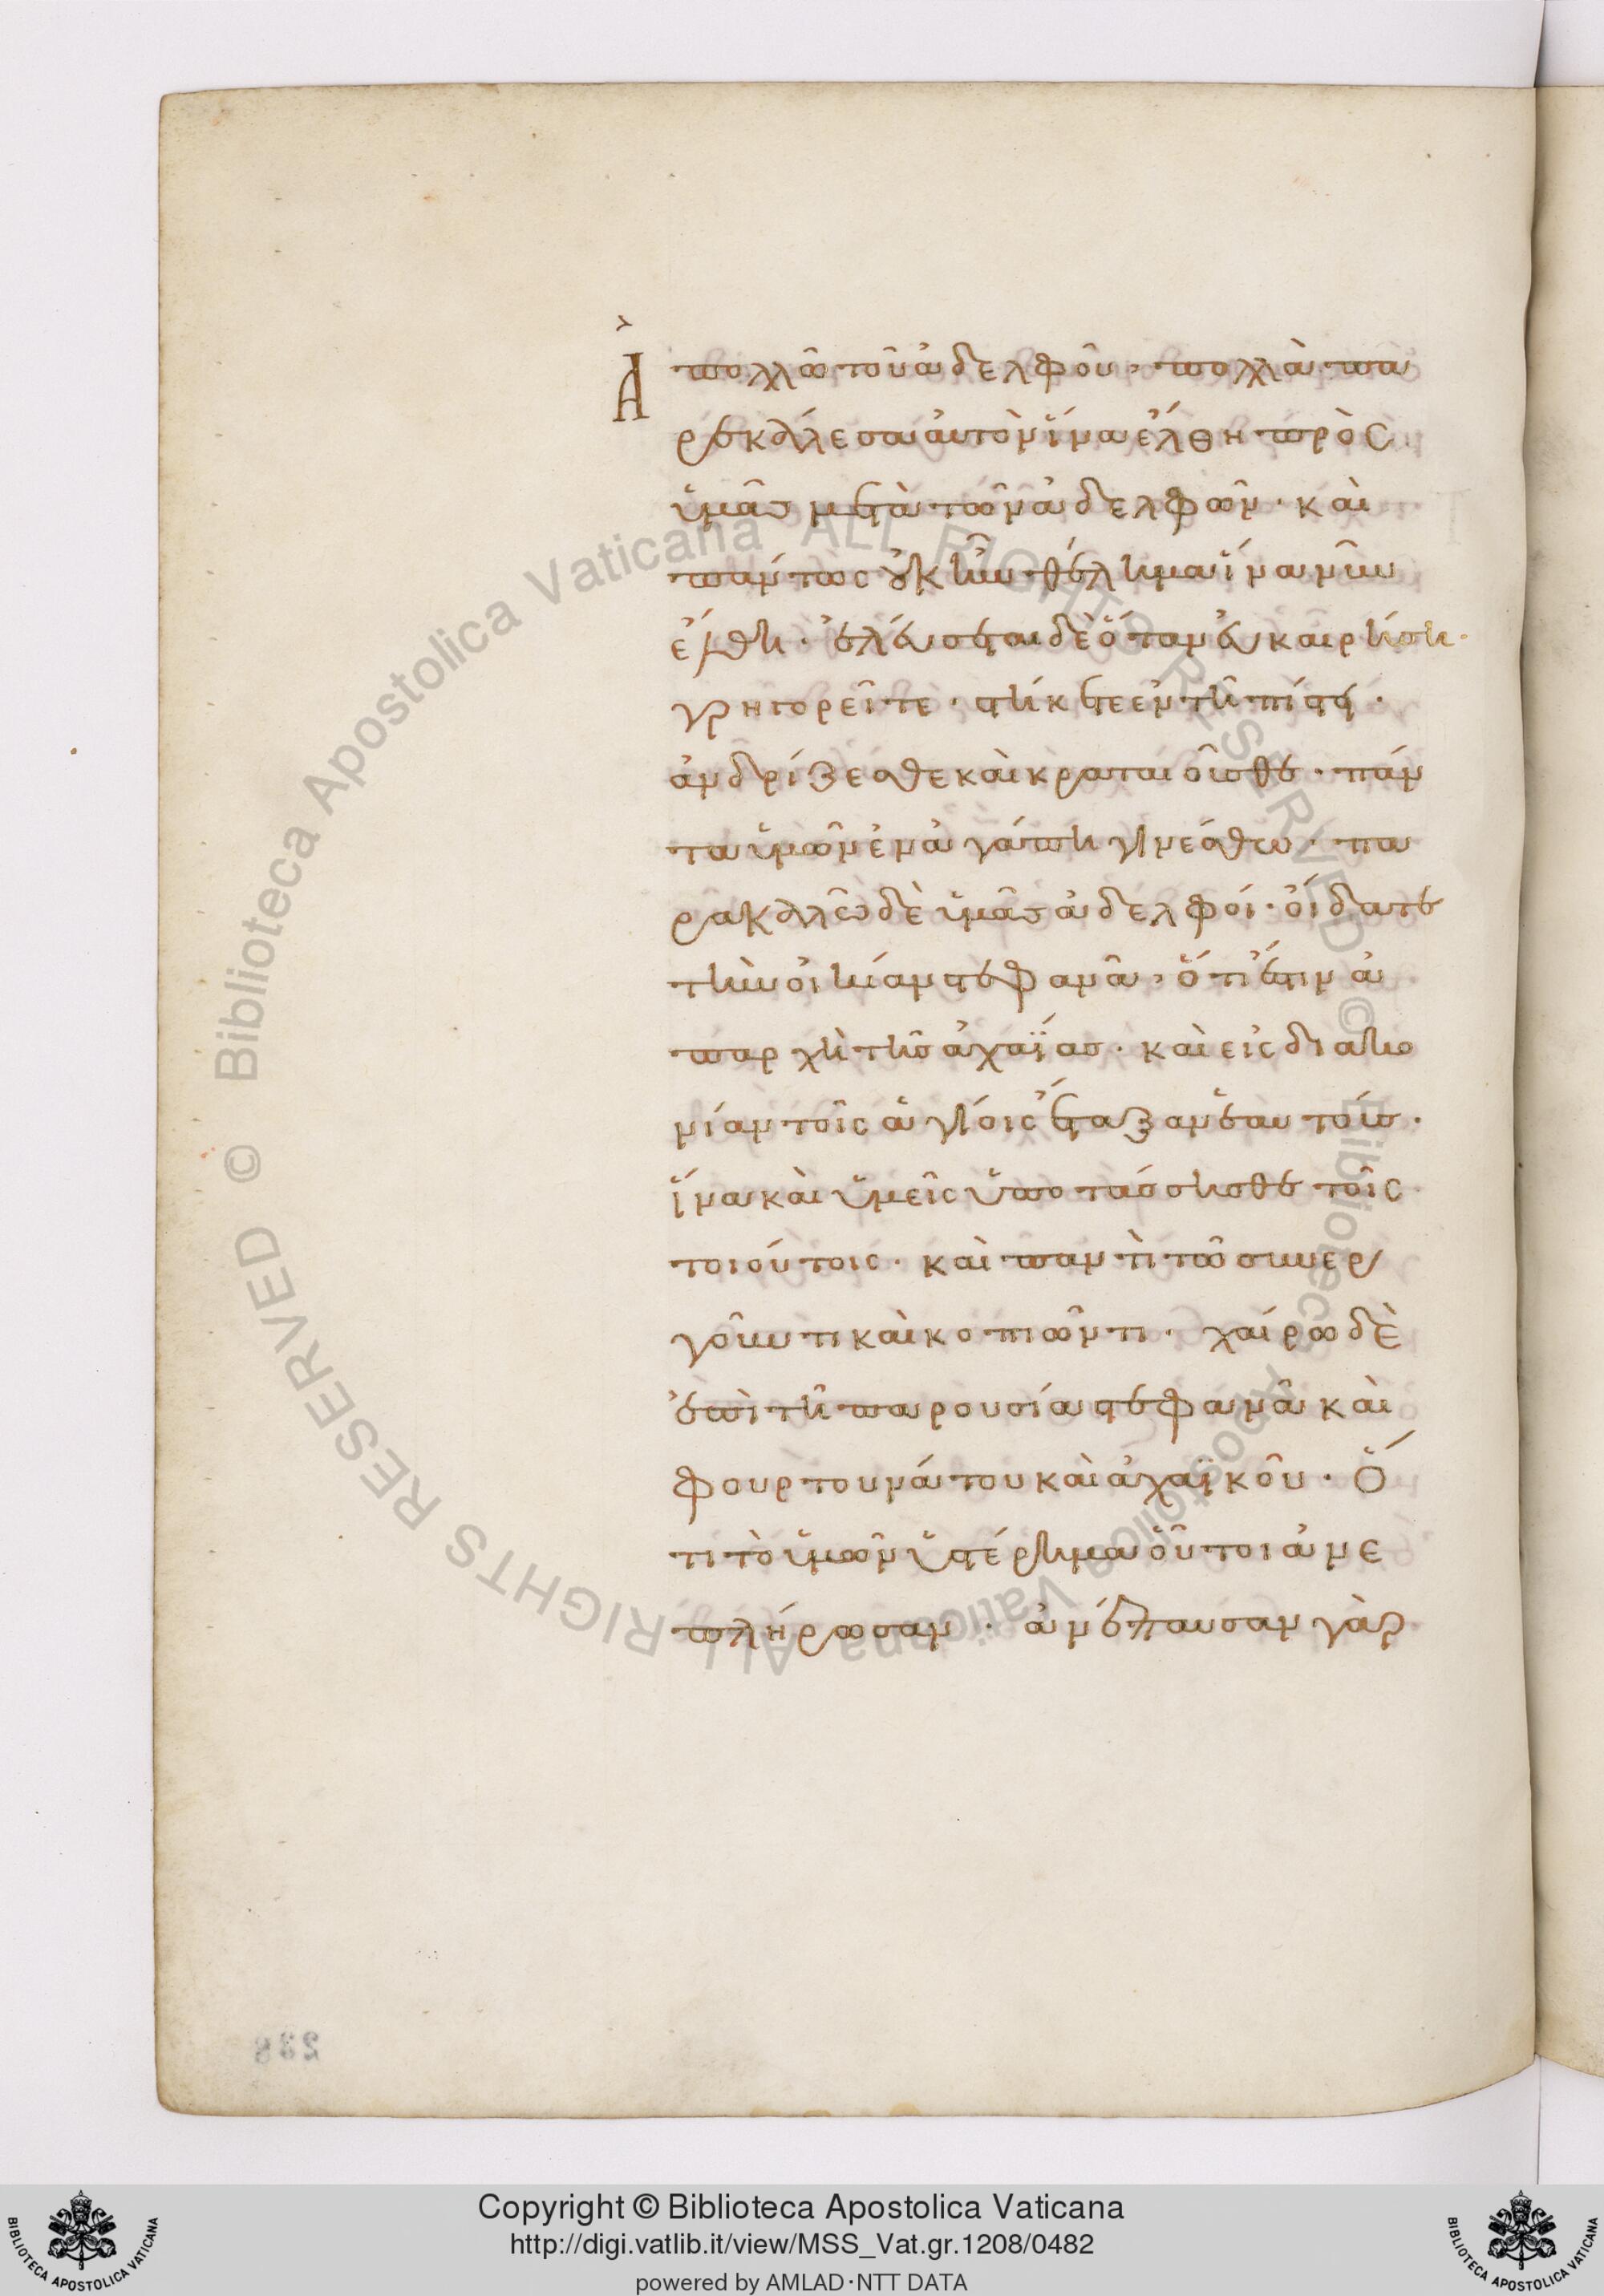 Ἀ πολλὼ τοῦ ἀδελφοῦ, πολλὰ πα
ρεκάλεσα αὐτὸν ἵνα ἔλθη πρὸς
ὑμᾶς μετὰ τῶν ἀδελφῶν· καὶ
πάντως οὐκ ἦν θέλημα ἵνα νῦν
ἔλθη· ἐλεύσεται δὲ ὅταν εὐκαιρήση·
γρηγορεῖτε· στήκετε ἐν τῆ πίστει·
ἀνδρίζεσθε καὶ κραταιοῦσθε· πάν
τα ὑμῶν ἐν ἀγάπη γινέσθω· πα
ρακαλῶ δὲ ὑμᾶς ἀδελφοί· οἴδατε
τὴν οἰκίαν στεφανᾶ, ὅτι ἐστὶν ἀ
παρχὴ τῆς ἀχαΐας· καὶ εἰς διακο
νίαν τοῖς ἁγίοις ἔταξαν ἑαυτούς·
ἵνα καὶ ὑμεῖς ὑποτάσσησθε τοῖς
τοιούτοις· καὶ παντὶ τῶ συνερ
γοῦντι καὶ κοπιῶντι· χαίρω δὲ
ἐπὶ τῆ παρουσία στεφανᾶ καὶ
φουρτουνάτου καὶ ἀχαϊκοῦ· Ὅ
τι τὸ ὑμῶν ὑστέρημα οὗτοι ἀνε
πλήρωσαν· ἀνέπαυσαν γὰρ
238
© Biblioteca Apostolica Vaticana ALL RIGHTS RESERVED © Biblioteca Apostolica Vaticana ALL RIGHTS RESERVED
Copyright © Biblioteca Apostolica Vaticana
http://digi.vatlib.it/view/MSS_Vat.gr.1208/0482
powered by AMLAD·NTT DATA
BIBLIOTECA APOSTOLICA VATICANA
BIBLIOTECA APOSTOLICA VATICANA